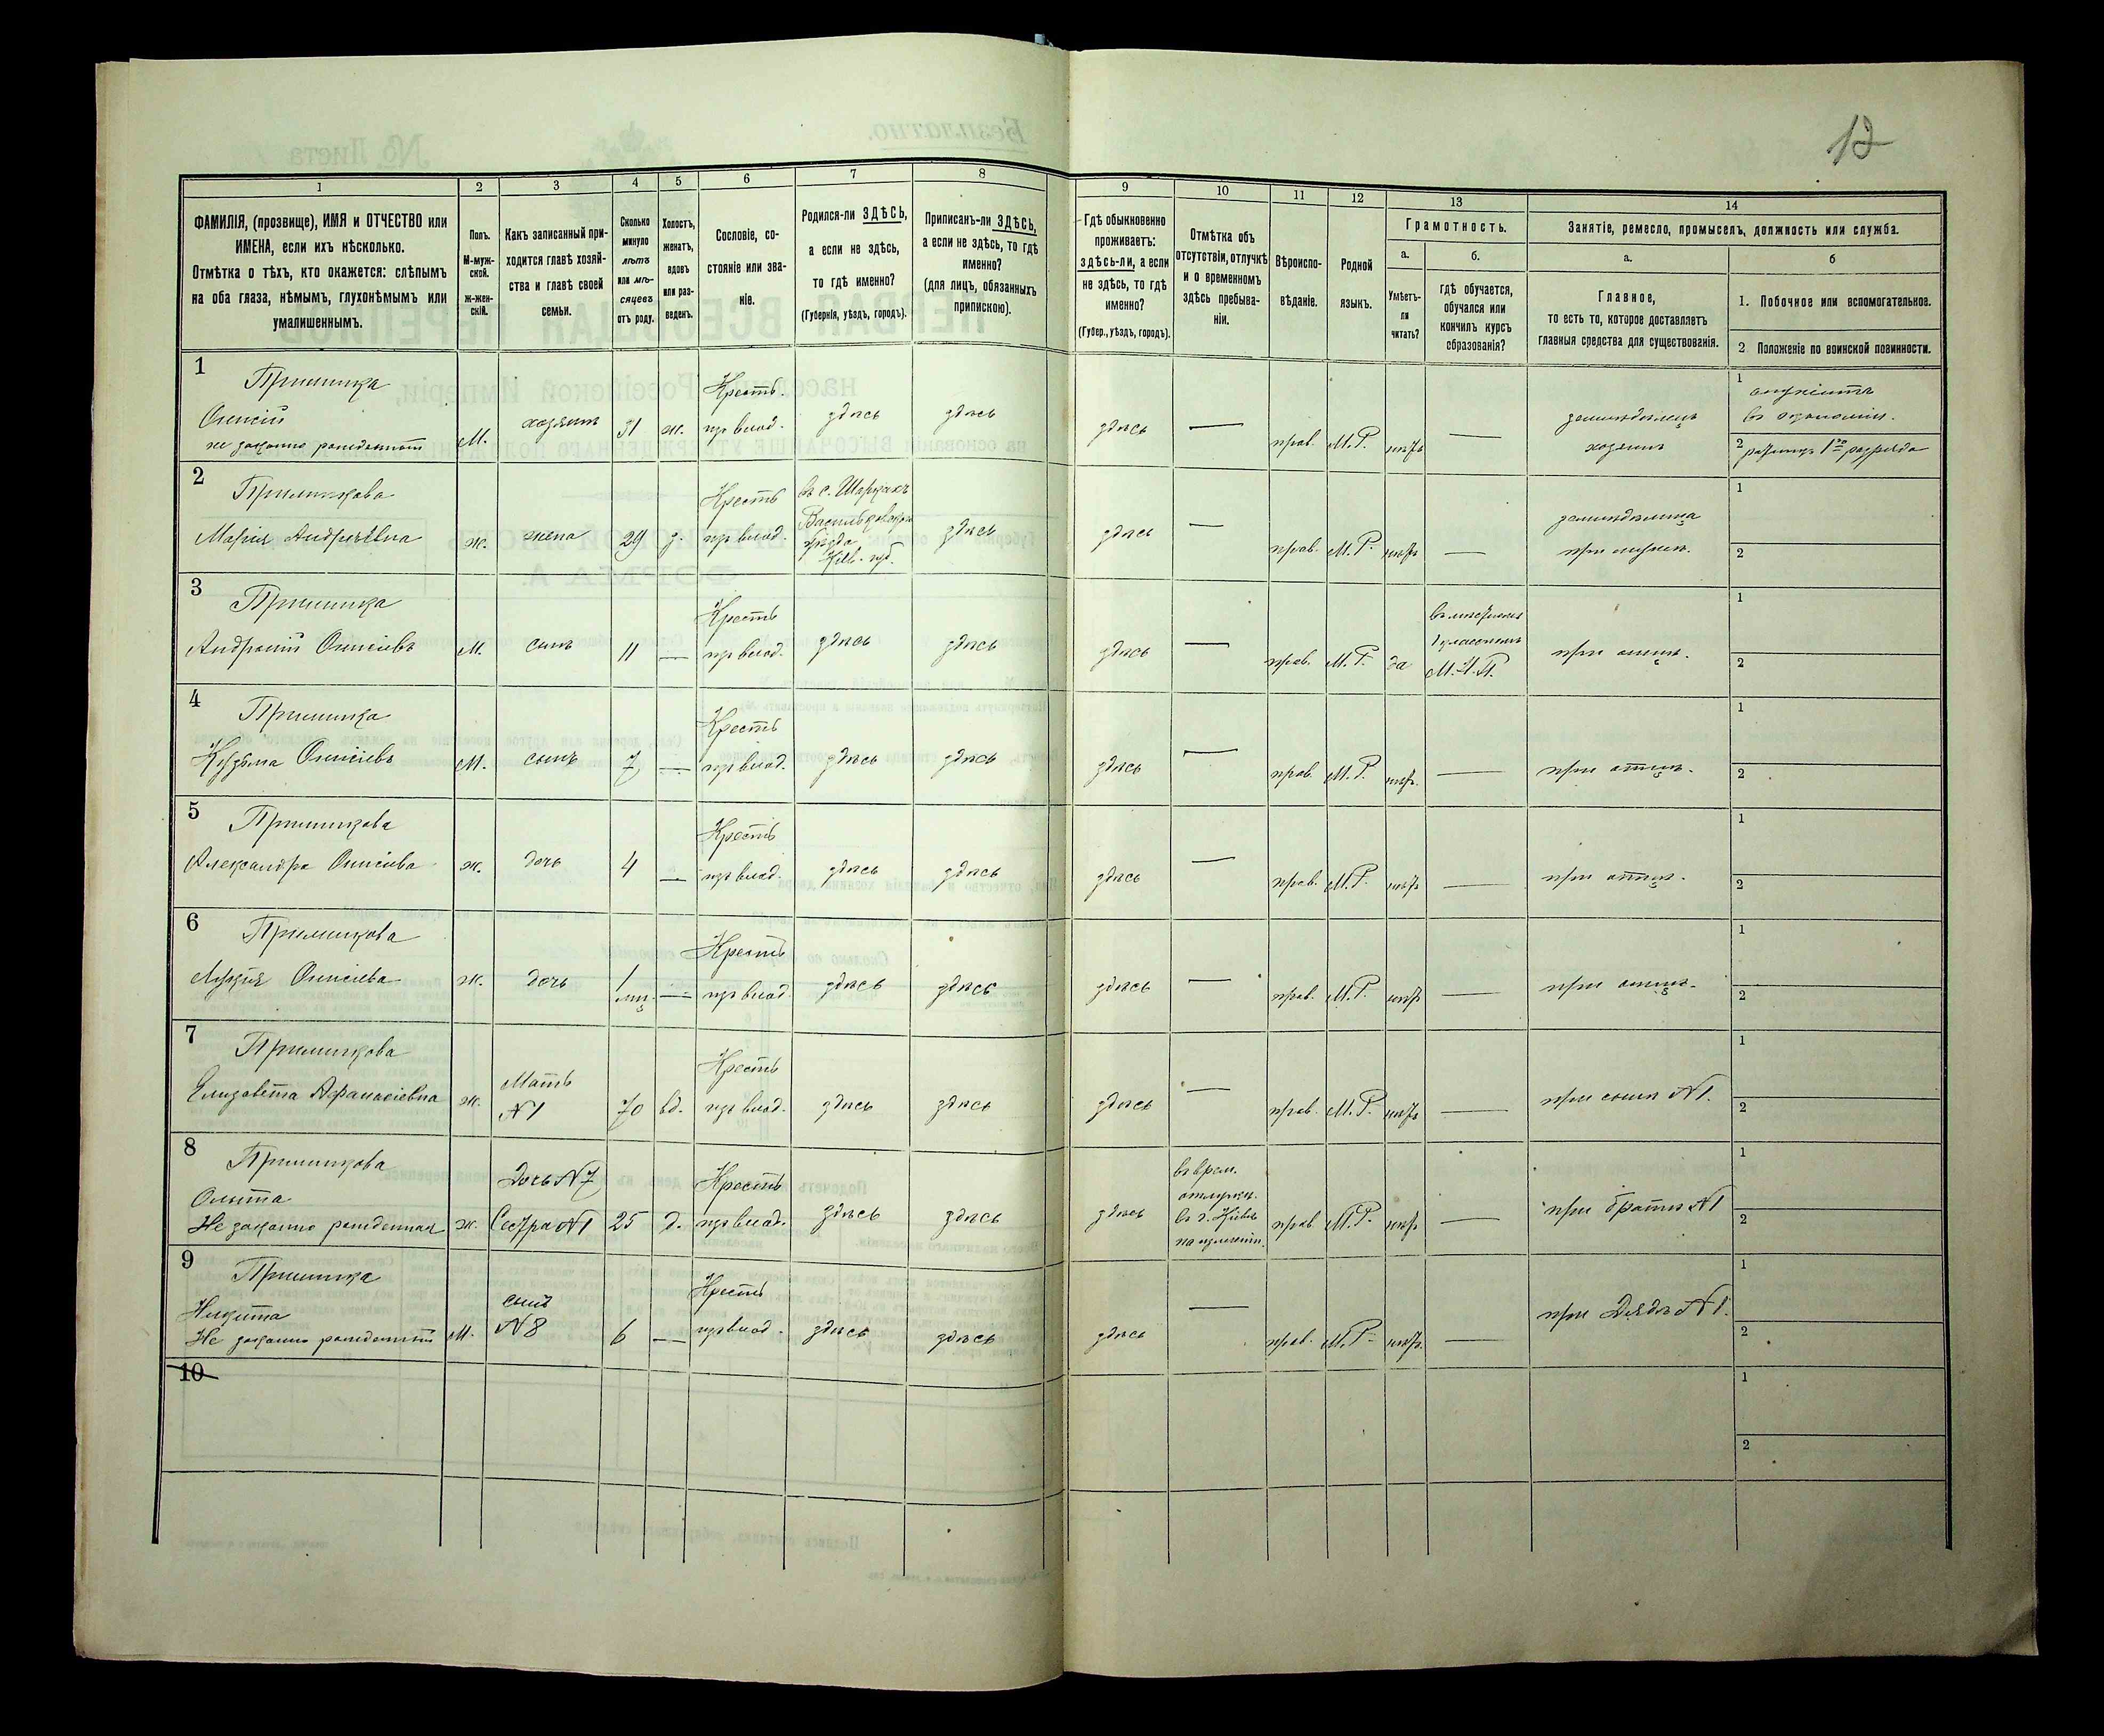 12
1 2 3 4 5 6 7 8 9 10 11 12 13 14
ФАМИЛІЯ, (прозвище), ИМЯ и ОТЧЕСТВО или
ИМЕНА, если ихъ нѣсколько.
Отмѣтка о тѣхъ, кто окажется: слѣпымъ
на оба глаза, нѣмымъ, глухонѣмымъ или
умалишеннымъ.
Полъ.
М-муж-
ской.
ж-жен-
скій.
Какъ записанный при-
ходится главѣ хозяй-
ства и главѣ своей
семьи.
Сколько
минуло
лѣтъ
или мѣ-
сяцевъ
отъ роду.
Холостъ,
женатъ,
вдовъ
или раз-
веденъ.
Сословіе, со-
стояніе или зва-
ніе.
Родился-ли ЗДѢСЬ,
а если не здѣсь,
то гдѣ именно?
(Губернія, уѣздъ, городъ).
Приписанъ-ли ЗДѢСЬ,
а если не здѣсь, то гдѣ
именно?
(для лицъ, обязанныхъ
припискою).
Гдѣ обыкновенно
проживаетъ:
здѣсь-ли, а если
не здѣсь, то гдѣ
именно?
(Губер., уѣздъ, городъ).
Отмѣтка объ
отсутствіи, отлучкѣ
и о временномъ
здѣсь пребыва-
ніи.
Вѣроиспо-
вѣданіе.
Родной
языкъ.
Грамотность.
а.
Умѣетъ-
ли
читать?
б.
гдѣ обучается,
обучался или
кончилъ курсъ
образованія?
Занятіе, ремесло, промыселъ, должность или служба.
а.
Главное,
то есть то, которое доставляетъ
главныя средства для существованія.
б
1. Побочное или вспомогательное.
2 Положеніе по воинской повинности.
1
Онисій
не законно рожденный
М.
хозяинъ
31
ж.
Крестъ.
изъ влад.
здѣсь
здѣсь
здѣсь
—
прав.
М. Р.
нѣтъ
—
земледѣлецъ
хозяинъ
1
въ экономіи.
2 ратникъ 1го разряда
2
Марія Андреевна
ж.
жена
29
з.
Кресть
изъ влад.
Васильковскаго
уѣзда
Кіев. губ.
здѣсь
здѣсь
—
прав.
М. Р.
нѣтъ
—
земледѣлица
при мужѣ.
1
2
3
Андрей Онисіевъ
М.
сынъ
11
—
Кресть
изъ влад.
здѣсь
здѣсь
здѣсь
—
прав.
М. Р.
да
М. Н. П.
при отцѣ.
1
2
4
Кузьма Онисіевъ
М.
сынъ
7
—
Кресть
изъ влад.
здѣсь
здѣсь
здѣсь
—
прав.
М. Р.
нѣтъ.
—
при отцѣ.
1
2
5
Александра Онисіева
ж.
дочь
4
—
Кресть
изъ влад.
здѣсь
здѣсь
здѣсь
—
прав.
М. Р.
нѣтъ
—
при отцѣ.
1
2
6
Лукія Онисіева
ж.
дочь
1
мѣц.
—
Кресть
изъ влад.
здѣсь
здѣсь
здѣсь
—
прав.
М. Р.
нѣтъ
—
при отцѣ.
1
2
7
Елизавета Афанасіевна
ж.
Мать
№1
70
вд.
Кресть
изъ влад.
здѣсь
здѣсь
здѣсь
—
прав.
М. Р.
нѣтъ
—
при сынѣ №1.
1
2
8
Не законно рожденная
ж.
Дочь №7
Сестра №1
25
д.
Кресть
изъ влад.
здѣсь
здѣсь
здѣсь
въ врем.
отлучкѣ.
въ г. Кіевѣ
прав
М. Р.
нѣтъ
—
при братѣ №1
1
2
9
Никита
Не законно рожденный
М.
сынъ
№8
6
—
Кресть
изъ влад.
здѣсь
здѣсь
здѣсь
—
прав.
М. Р.
нѣтъ.
—
при Дядѣ №1.
1
2
10
1
2